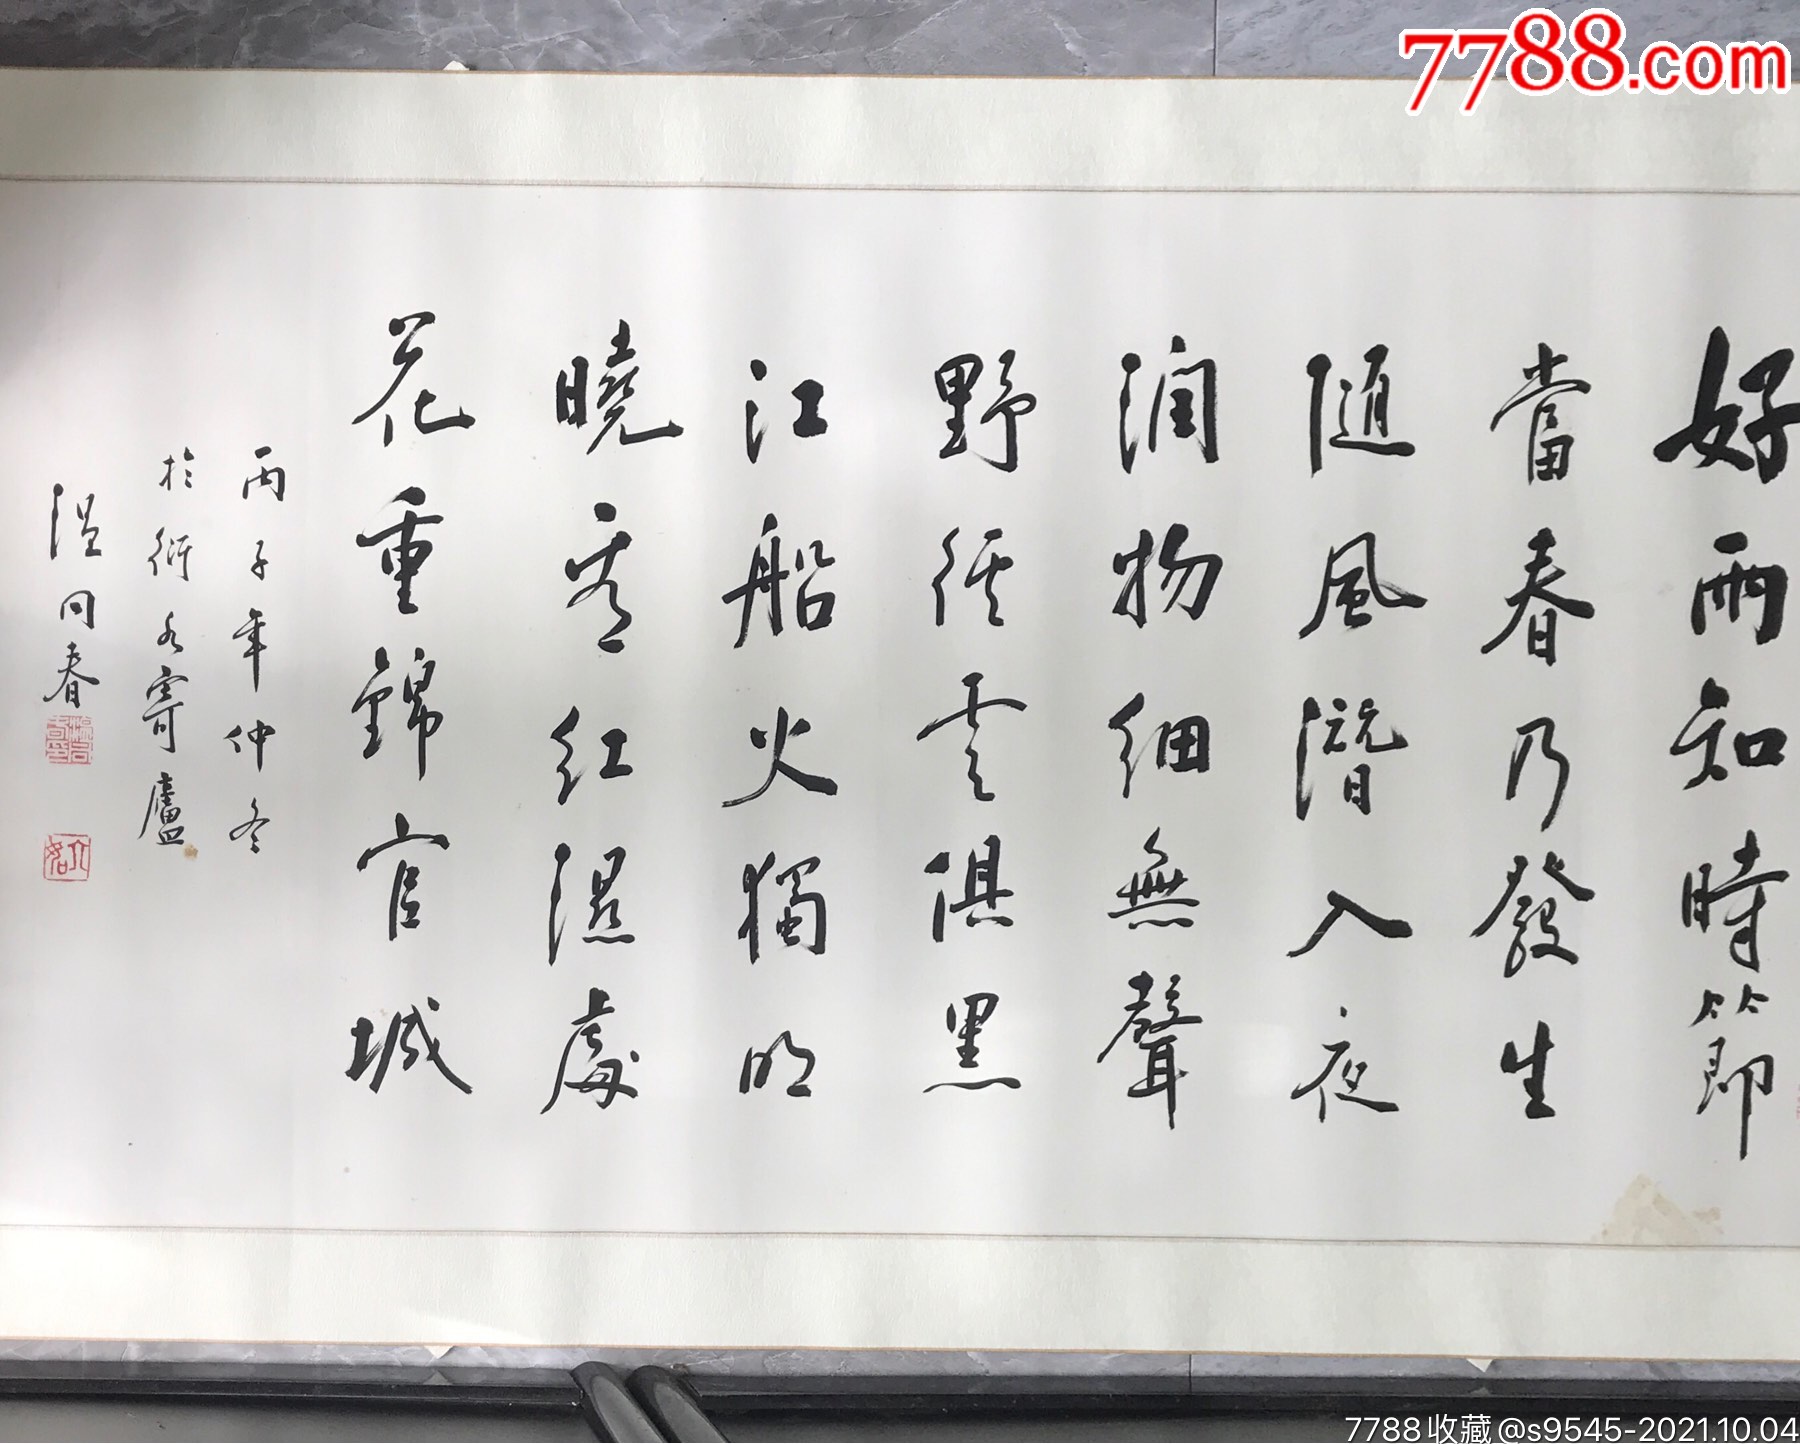 7788.com
好雨知時節
當春乃發生
隨風潛入夜
润物細無聲
野径雲俱黑
江船火獨明
曉看红濕處
花重錦官城
丙子年仲冬
於衍水寄廬
溫同春
7788收藏@s9545-2021.10.04